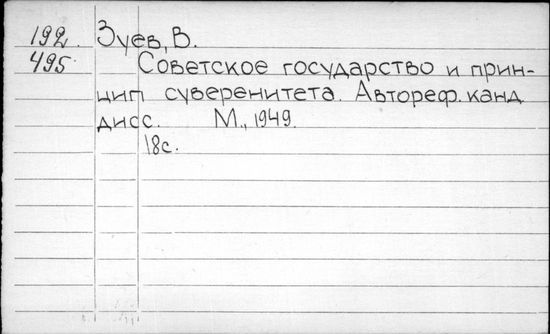 192. Зуев, В.
495 Советское государство и прин-
цип суверенитета. Автореф. канд.
дисс. М., 1949.
18с.